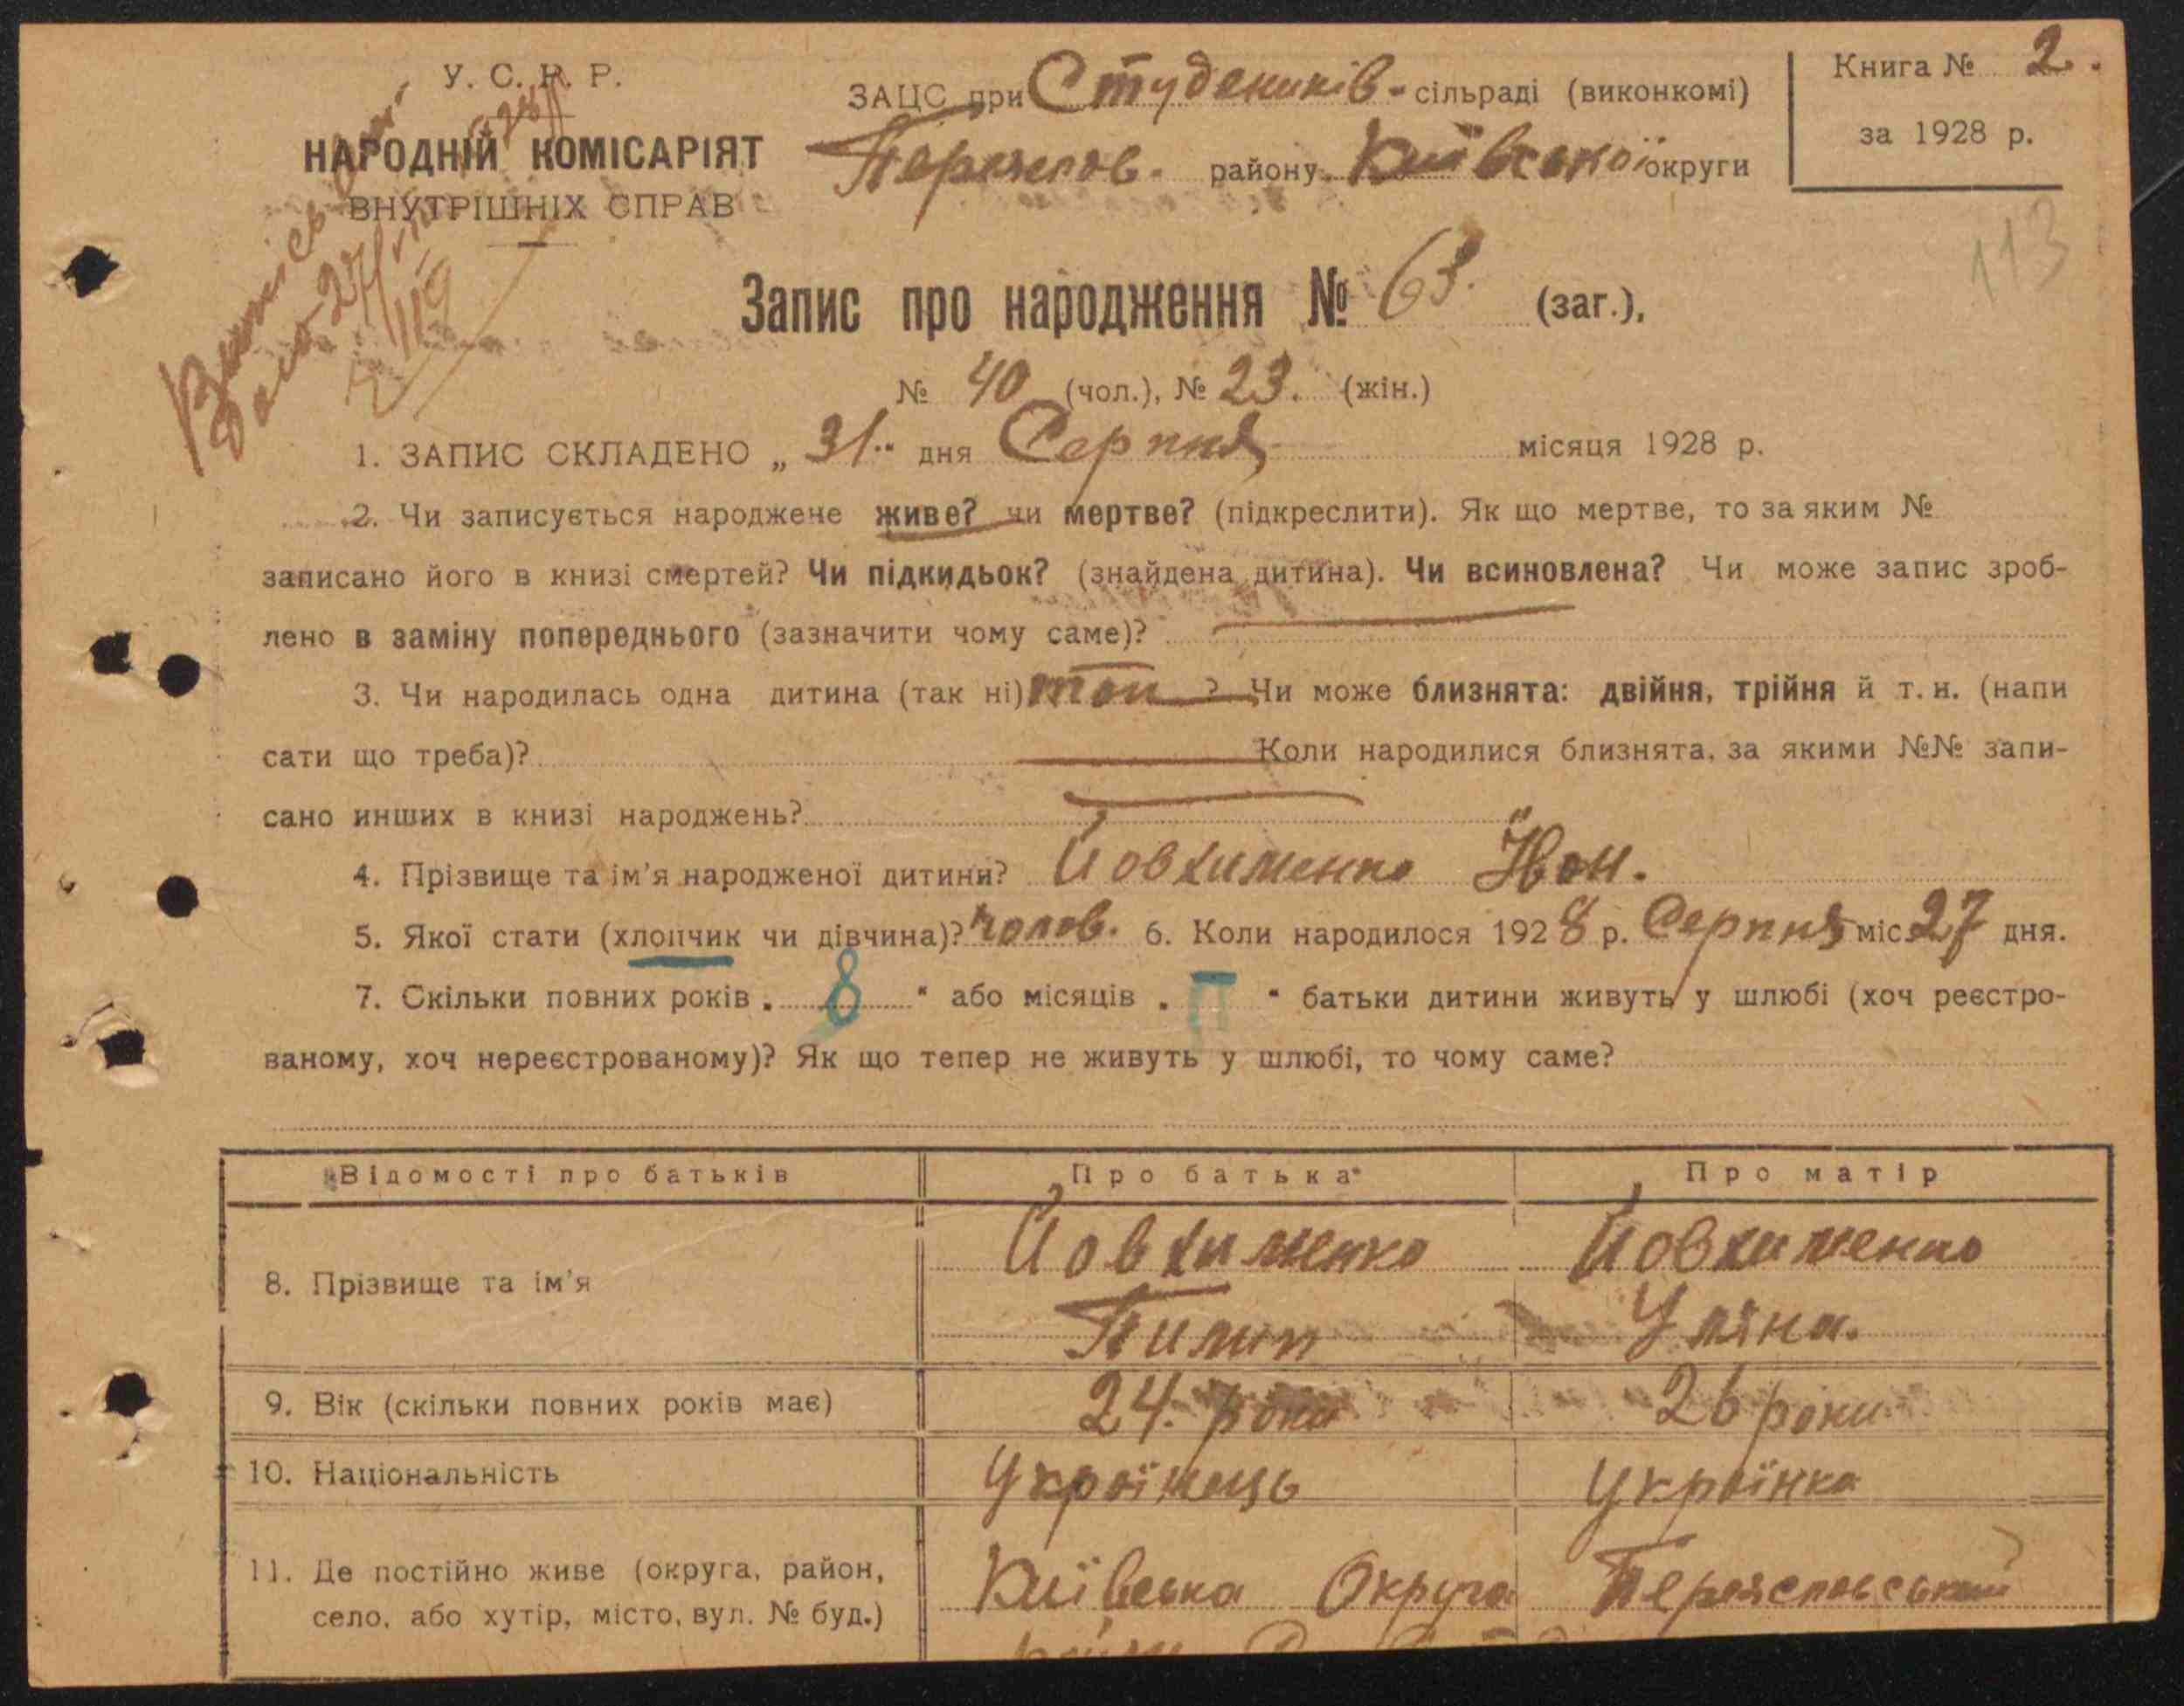 У. С. Р. Р.
НАРОДНІЙ КОМІСАРІЯТ
ВНУТРІШНІХ СПРАВ
ЗАЦС при Студеників. сільраді (виконкомі)
Переяслов. району Київської округи
Книга № 2.
за 1928 р.
113
Запис про народження № 63. (заг.),
№ 40 (чол.), № 23. (жін.)
1. ЗАПИС СКЛАДЕНО „ 31 " дня Серпня місяця 1928 р.
2. Чи записується народжене живе? чи мертве? (підкреслити). Як що мертве, то за яким №
записано його в книзі смертей? Чи підкидьок? (знайдена дитина). Чи всиновлена? Чи може запис зроб-
лено в заміну попереднього (зазначити чому саме)?
3. Чи народилась одна дитина (так ні) так ? Чи може близнята: двійня, трійня й т. н. (напи
сати що треба)? Коли народилися близнята, за якими №№ запи-
сано инших в книзі народжень?
4. Прізвище та ім'я народженої дитини? Йовхименко Йван.
5. Якої стати (хлопчик чи дівчина)? чолов. 6. Коли народилося 1928 р. Серпня міс. 27 дня.
7. Скільки повних років „ 8 " або місяців „ П " батьки дитини живуть у шлюбі (хоч реєстро-
ваному, хоч нереєстрованому)? Як що тепер не живуть у шлюбі, то чому саме?
Відомості про батьків Про батька Про матір
8. Прізвище та ім'я Йовхименко Йовхименко
Пилип Уляна.
9. Вік (скільки повних років має) 24. роки 26 роки
10. Національність Українець Українка
11. Де постійно живе (округа, район, Київська Округа Переяславський
село, або хутір, місто, вул. № буд.)